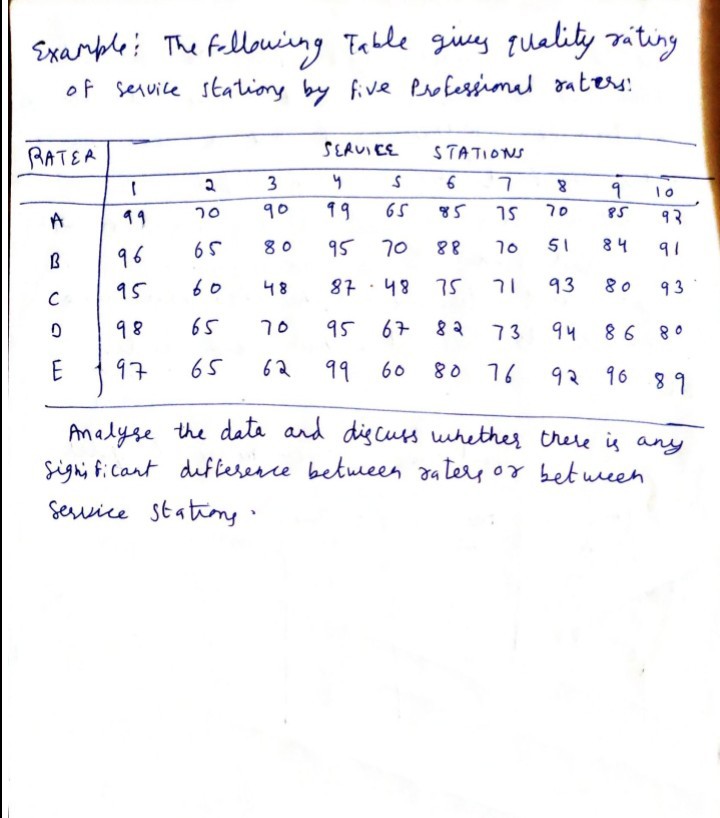 Example: The following Table gives quality rating
of service stations by five Professional raters:
RATER SERVICE STATIONS
1 2 3 4 5 6 7 8 9 10
A 99 70 90 99 65 85 75 70 85 92
B 96 65 80 95 70 88 70 51 84 91
C 95 60 48 87 48 75 71 93 80 93
D 98 65 70 95 67 82 73 94 86 80
E 97 65 62 99 60 80 76 92 96 89
Analyse the data and discuss whether there is any
significant difference between raters or between
Service Stations.